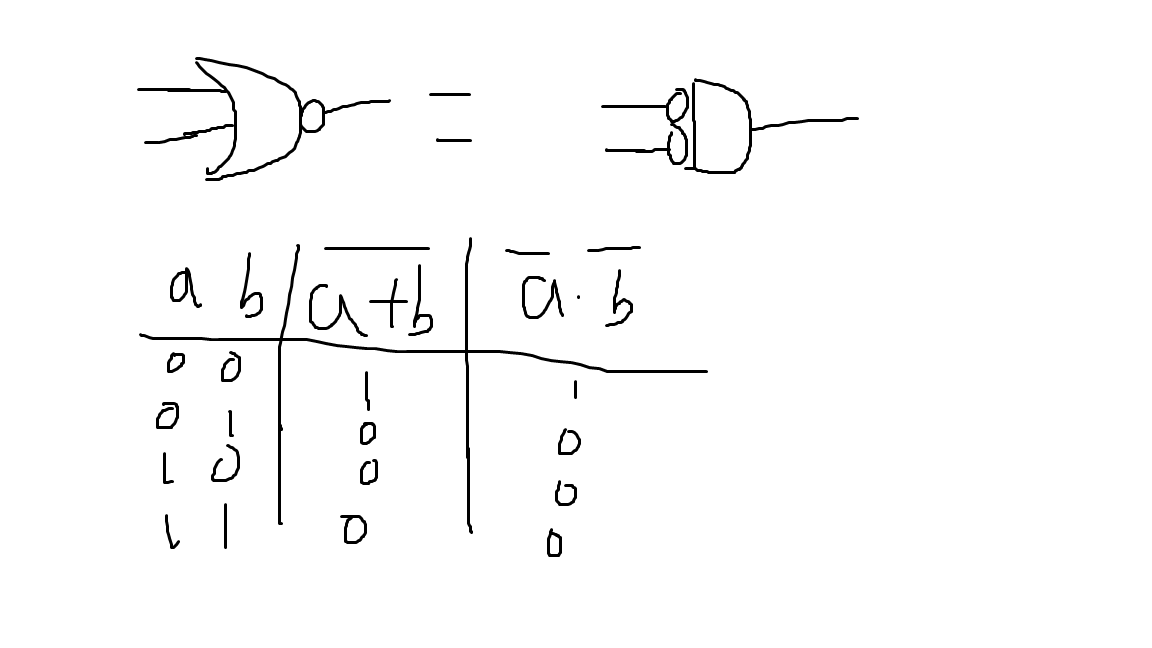 =
a b | a̅+̅b̅ | a̅ · b̅
0 0 | 1 | 1
0 1 | 0 | 0
1 0 | 0 | 0
1 1 | 0 | 0